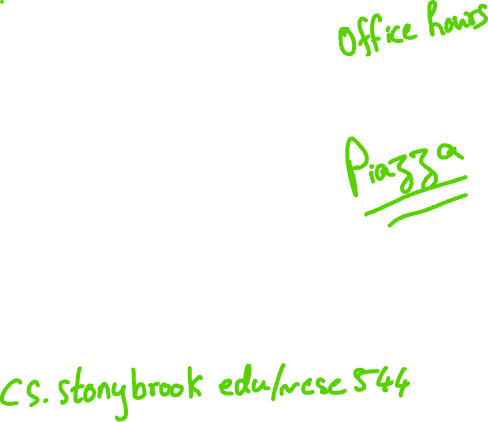 Office hours
Piazza
cs.stonybrook edu/~cse544